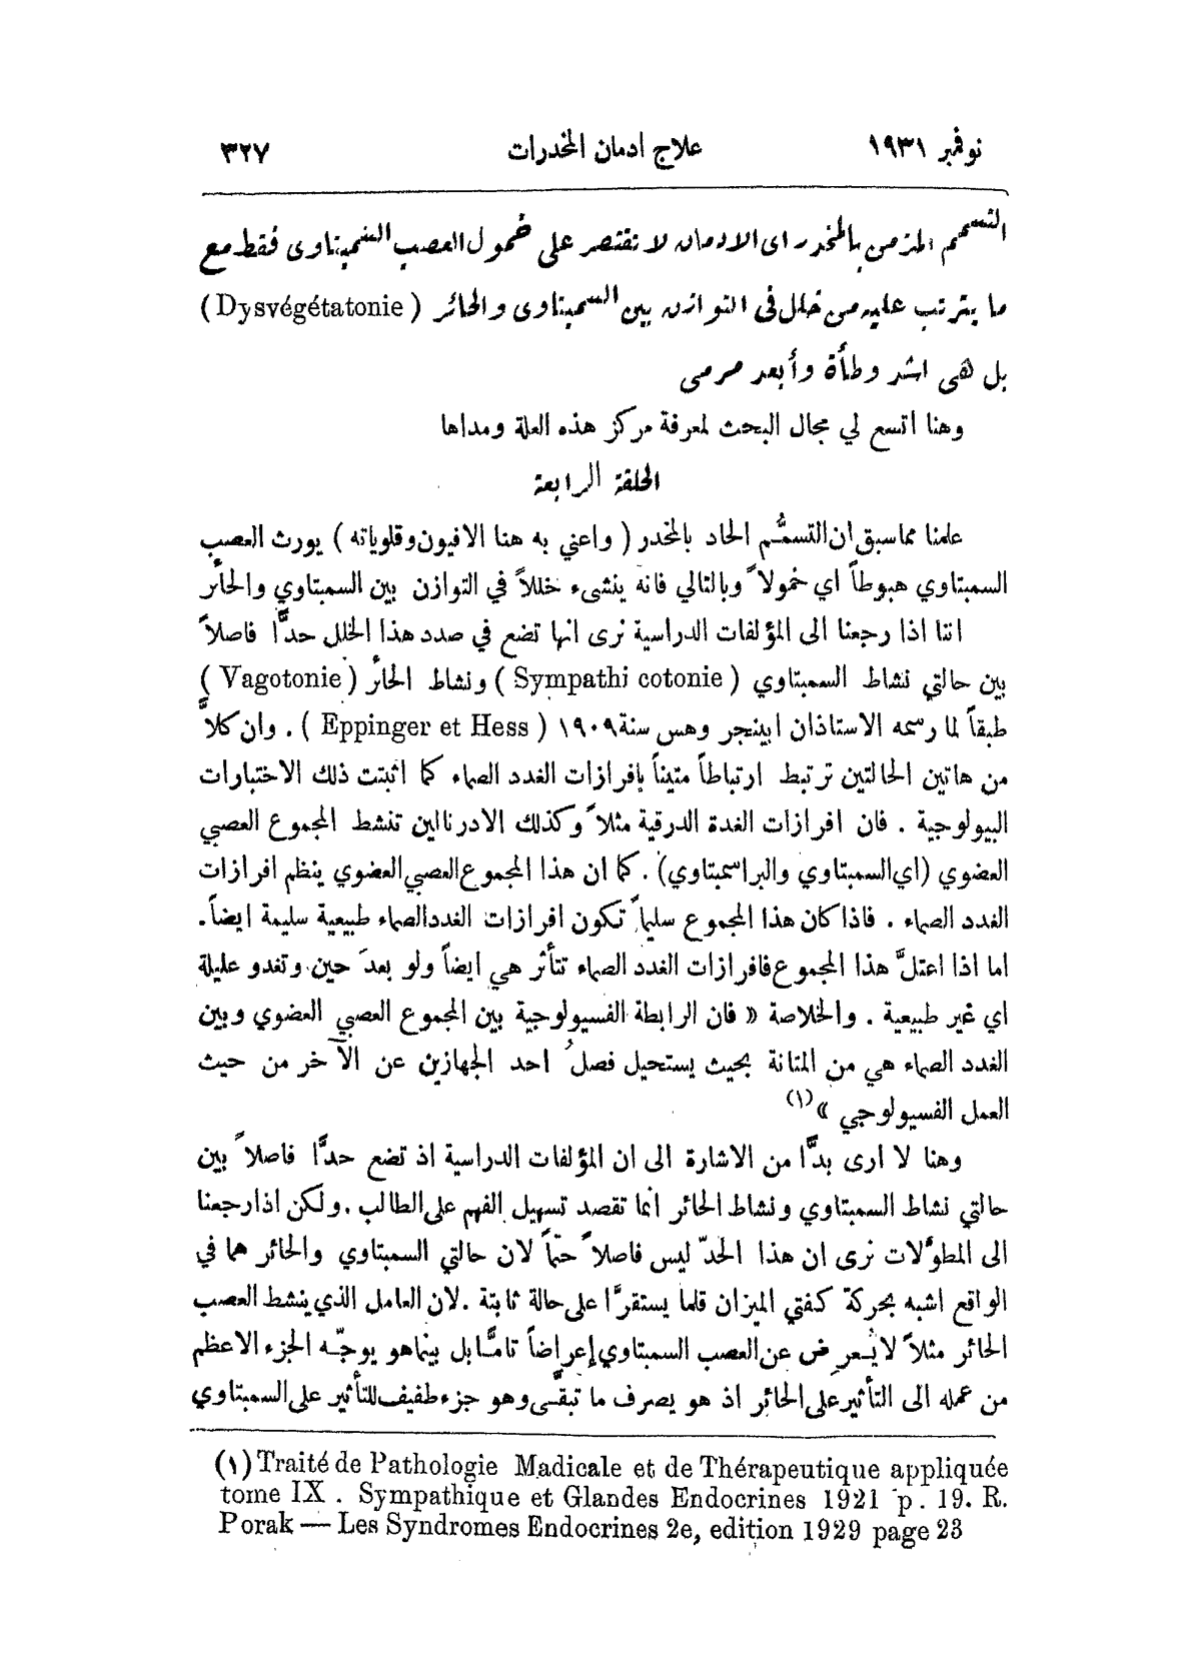 نوفمبر ١٩٣١ علاج ادمان المخدرات ٣٢٧
التسمم المزمن بالمخدر اى الادمان لا تقتصر على خمول العصب السمبتاوى فقط مع
ما يترتب عليه من خلل فى التوازن بين السمبتاوى والحائر ( Dysvégétatonie )
بل هى اشد وطأة وأبعد مرمى
وهنا اتسع لي مجال البحث لمعرفة مركز هذه العلة ومداها
الحلقة الرابعة
علمنا مما سبق ان التسمُّم الحاد بالمخدر ( واعني به هنا الافيون وقلوياته ) يورث العصب
السمبتاوي هبوطاً اي خمولاً وبالتالي فانه ينشىء خللاً في التوازن بين السمبتاوي والحائر
اننا اذا رجعنا الى المؤلفات الدراسية نرى انها تضع في صدد هذا الخلل حدًّا فاصلاً
بين حالتي نشاط السمبتاوي ( Sympathi cotonie ) ونشاط الحائر ( Vagotonie )
طبقاً لما رسمه الاستاذان ابينجر وهس سنة ١٩٠٩ ( Eppinger et Hess ) . وان كلاًّ
من هاتين الحالتين ترتبط ارتباطاً متيناً بإفرازات الغدد الصماء كما اثبتت ذلك الاختبارات
البيولوجية . فان افرازات الغدة الدرقية مثلاً وكذلك الادرنالين تنشط المجموع العصبي
العضوي (اي السمبتاوي والبراسمبتاوي) . كما ان هذا المجموع العصبي العضوي ينظم افرازات
الغدد الصماء . فاذا كان هذا المجموع سليماً تكون افرازات الغدد الصماء طبيعية سليمة ايضاً .
اما اذا اعتلَّ هذا المجموع فافرازات الغدد الصماء تتأثر هي ايضاً ولو بعدَ حين وتغدو عليلة
اي غير طبيعية . والخلاصة « فان الرابطة الفسيولوجية بين المجموع العصبي العضوي وبين
الغدد الصماء هي من المتانة بحيث يستحيل فصلُ احد الجهازين عن الآخر من حيث
العمل الفسيولوجي » (١)
وهنا لا ارى بدًّا من الاشارة الى ان المؤلفات الدراسية اذ تضع حدًّا فاصلاً بين
حالتي نشاط السمبتاوي ونشاط الحائر انما تقصد تسهيل الفهم على الطالب . ولكن اذا رجعنا
الى المطوَّلات نرى ان هذا الحدّ ليس فاصلاً حتماً لان حالتي السمبتاوي والحائر هما في
الواقع اشبه بحركة كفتي الميزان قلما يستقرَّا على حالة ثابتة . لان العامل الذي ينشط العصب
الحائر مثلاً لا يُعرِض عن العصب السمبتاوي إعراضاً تامًّا بل بينما هو يوجّه الجزء الاعظم
من عمله الى التأثير على الحائر اذ هو يصرف ما تبقَّى وهو جزء طفيف للتأثير على السمبتاوي
(١) Traité de Pathologie Madicale et de Thérapeutique appliquée
tome IX . Sympathique et Glandes Endocrines 1921 p. 19. R.
Porak — Les Syndromes Endocrines 2e, edition 1929 page 23